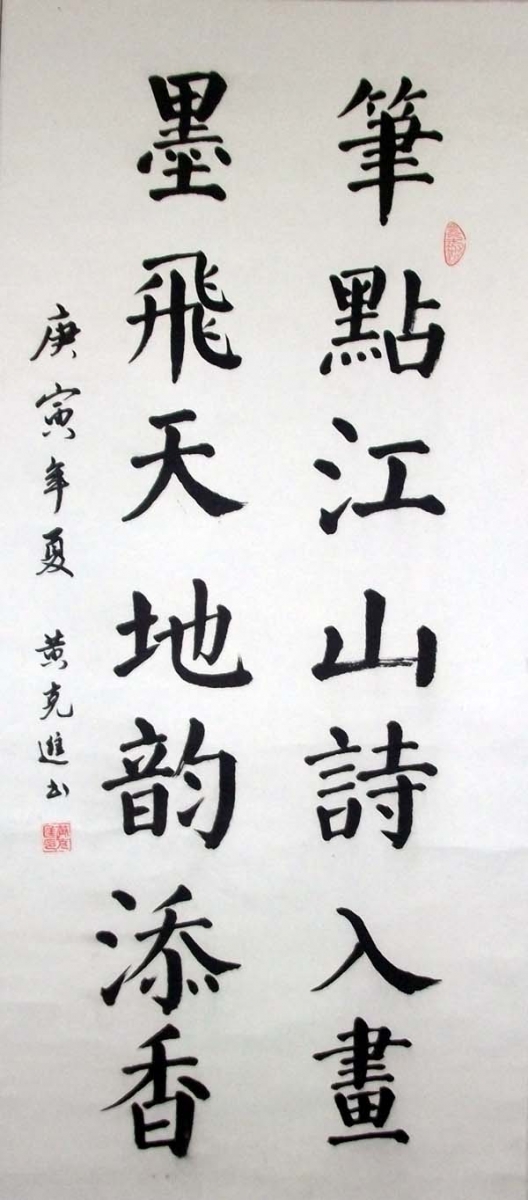 筆點江山詩入畫
墨飛天地韵添香
庚寅年夏 黄克進书